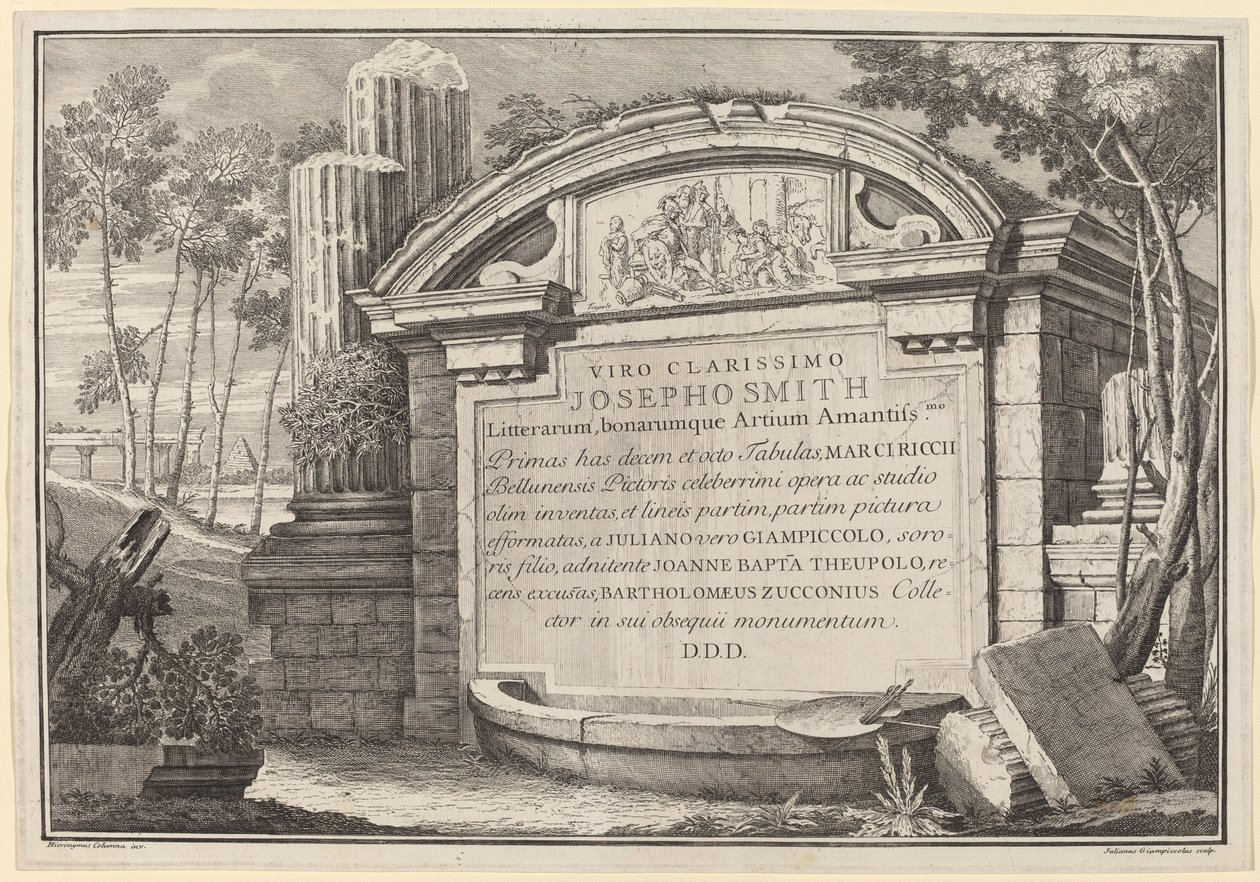 Tiepolo
VIRO CLARISSIMO
JOSEPHO SMITH
Litterarum, bonarumque Artium Amantiſs.mo
Primas has decem et octo Tabulas, MARCI RICCII
Bellunensis Pictoris celeberrimi opera ac studio
olim inventas, et lineis partim, partim pictura
efformatas, a JULIANO vero GIAMPICCOLO, soro=
ris filio, adnitente JOANNE BAPTĀ THEUPOLO, re=
cens excus̄as, BARTHOLOMÆUS ZUCCONIUS Colle=
ctor in sui obsequii monumentum.
D.D.D.
Hieronymus Columna inv.
Julianus Giampiccolus sculp.